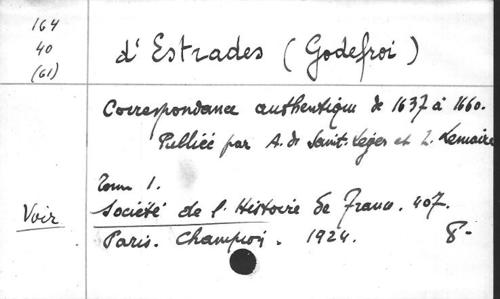 164
40
(61)
d'Estrades (Godefroi)
Correspondance authentique de 1637 à 1660.
Publiée par A. de Saint-Leger et L. Lemaire
Tome 1.
Voir
Société de l'Histoire de France. 407.
Paris. Champion. 1924. 8-